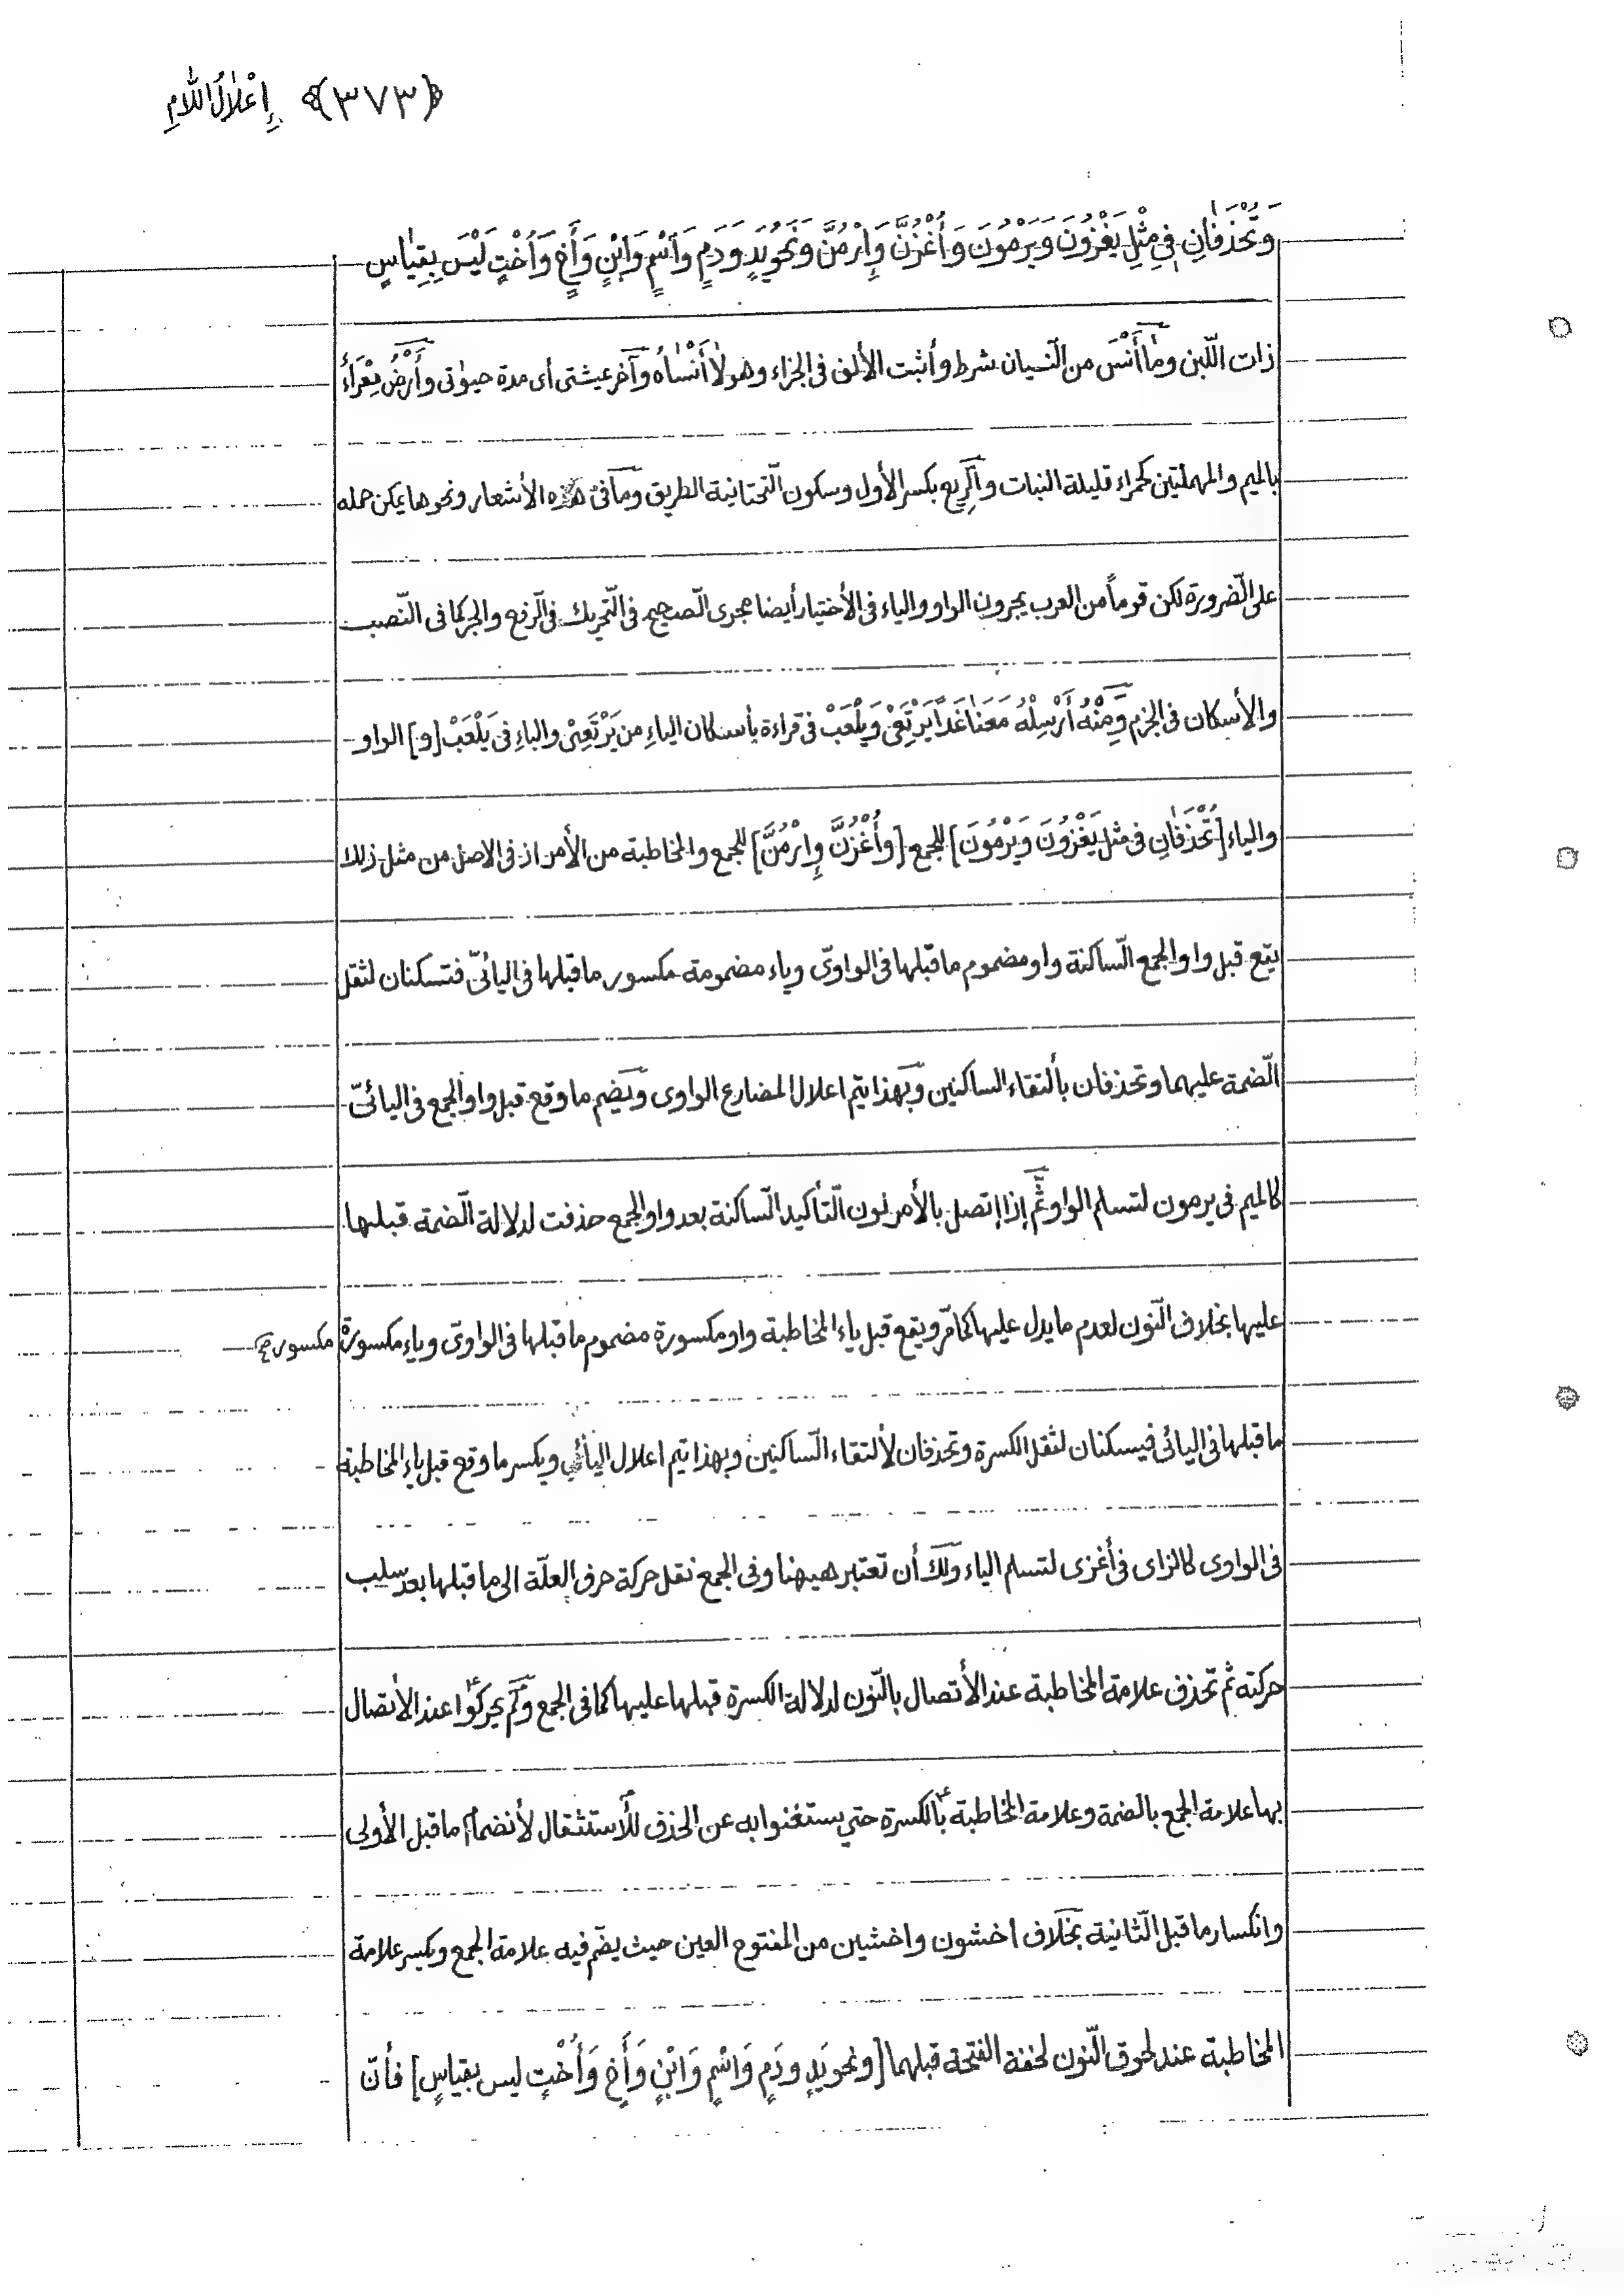 ﴿٣٧٣﴾ إِعْلَالُ اللَّامِ
وَتُحْذَفَانِ فِي مِثْلِ يَغْزُونَ وَيَرْمُونَ وَأُغْزُنَّ وَإِرْمُنَّ وَنَحْوُ يَدٍ وَدَمٍ وَاسْمٍ وَابْنٍ وَأَخٍ وَأُخْتٍ لَيْسَ بِقِيَاسٍ
ذات اللّبن وما أَنْسَ من النّسيان شرط وأثبت الألف في الجزاء وهو لا أَنْسَاهُ وآخر عيشتي أى مدة حيوتي وأَرْضُ مِعْرَاءُ
بالميم والمهملتين كحمراء قليلة النبات والرِيع بكسر الأول وسكون التّحتانية الطريق وما في هذه الأشعار ونحوها يمكن حمله
على الضّرورة لكن قوماً من العرب يجرون الواو والياء في الأختيار أيضا مجرى الصّحيح في التّحريك في الرّفع والجر كما في النّصب
والأسكان في الجزم وَمِنْهُ أَرْسِلْهُ مَعَنَا غَدًا يَرْتَعِيْ وَيَلْعَبْ في قراءة بأسكان الياءِ من يَرْتَعِيْ والباءِ في يَلْعَبْ [و] الواو
والياء [تُحْذَفَانِ في مثل يَغْزُونَ وَيَرْمُونَ] للجمع [وأُغْزُنَّ وإِرْمُنَّ] للجمع والمخاطبة من الأمر اذ في الاصل من مثل ذلك
يقع قبل واو الجمع السّاكنة واو مضموم ما قبلها في الواوىّ وياء مضمومة مكسور ما قبلها في اليائىّ فتسكنان لثقل
الضّمة عليهما وتحذفان بألتقاء الساكنين وبهذا يتم اعلال المضارع الواوى ويضم ما وقع قبل واو الجمع في اليائىّ
كالميم في يرمون لتسلم الواو ثُمَّ إذا إتصل بالأمر نون التّأكيد السّاكنة بعد واو الجمع حذفت لدلالة الضّمة قبلها
عليها بخلاف النّون لعدم ما يدل عليها كما مّر ويقع قبل ياء المخاطبة واو مكسورة مضموم ما قبلها في الواوىّ وياء مكسورة مكسور
ما قبلها في اليائى فيسكنان لثقل الكسرة وتحذفان لألتقاء السّاكنين وبهذا يتم اعلال اليائي ويكسر ما وقع قبل ياء المخاطبة
في الواوى كالزاى في أغزى لتسلم الياء ولك أن تعتبر هيهنا وفي الجمع نقل حركة حرف العلّة الى ما قبلها بعد سلب
حركته ثم تحذف علامة المخاطبة عند الأتصال بالنّون لدلالة الكسرة قبلها عليها كما في الجمع ولم يحركوا عند الأتصال
بها علامة الجمع بالضمة وعلامة المخاطبة بالكسرة حتى يستغنوا به عن الحذف للأستثقال لأنضمام ما قبل الأولى
وانكسار ما قبل الثّانية بخلاف اخشون واخشين من المفتوح العين حيث يضّم فيه علامة الجمع ويكسر علامة
المخاطبة عند لحوق النّون لخفة الفتحة قبلهما [ونحو يَدٍ ودَمٍ وَاسْمٍ وَابْنٍ وَأَخٍ وَأُخْتٍ ليس بقياسٍ] فأنّ